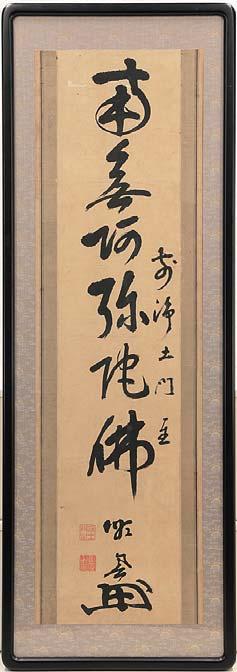 南無阿弥陀佛
前浄土門主